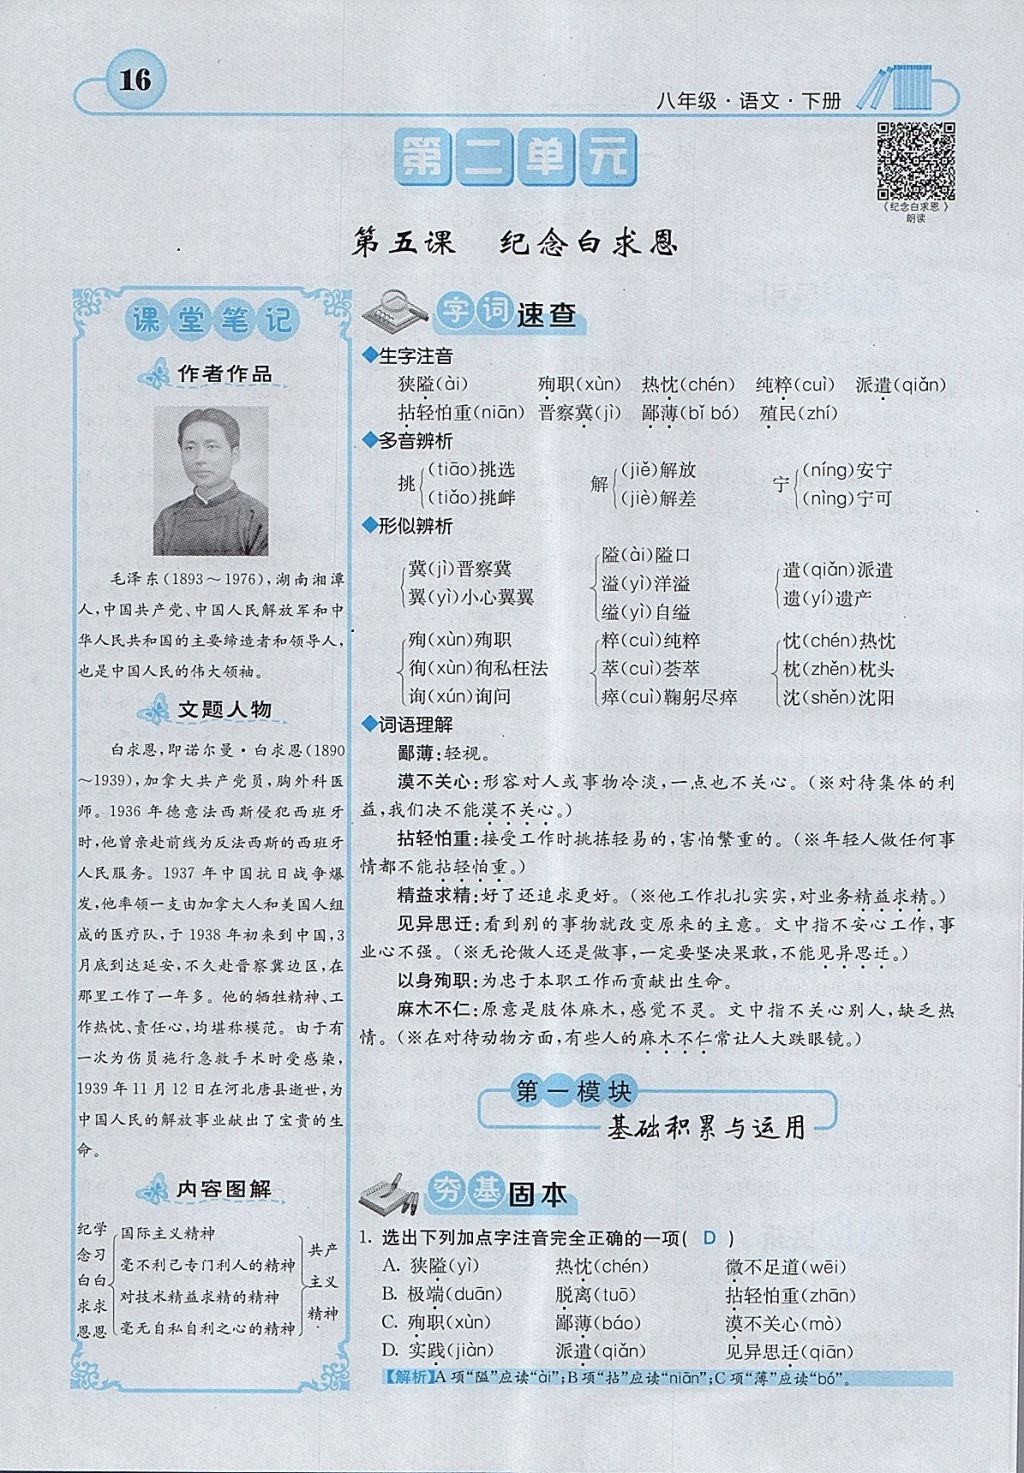 16
八年级·语文·下册
第二单元
《纪念白求恩》
朗读
第五课 纪念白求恩
课堂笔记
作者作品
毛泽东(1893～1976),湖南湘潭
人,中国共产党、中国人民解放军和中
华人民共和国的主要缔造者和领导人,
也是中国人民的伟大领袖。
文题人物
白求恩,即诺尔曼·白求恩(1890
～1939),加拿大共产党员,胸外科医
师。1936年德意法西斯侵犯西班牙
时,他曾亲赴前线为反法西斯的西班牙
人民服务。1937年中国抗日战争爆
发,他率领一支由加拿大人和美国人组
成的医疗队,于1938年初来到中国,3
月底到达延安,不久赴晋察冀边区,在
那里工作了一年多。他的牺牲精神、工
作热忱、责任心,均堪称模范。由于有
一次为伤员施行急救手术时受感染,
1939年11月12日在河北唐县逝世,为
中国人民的解放事业献出了宝贵的生
命。
内容图解
纪念白求恩
学习白求恩
国际主义精神
毫不利己专门利人的精神
对技术精益求精的精神
毫无自私自利之心的精神
共产
主义
精神
字词速查
◆生字注音
狭隘(ài) 殉职(xùn) 热忱(chén) 纯粹(cuì) 派遣(qiǎn)
拈轻怕重(niān) 晋察冀(jì) 鄙薄(bǐ bó) 殖民(zhí)
◆多音辨析
挑 (tiāo)挑选 (tiǎo)挑衅
解 (jiě)解放 (jiè)解差
宁 (níng)安宁 (nìng)宁可
◆形似辨析
冀(jì)晋察冀
翼(yì)小心翼翼
隘(ài)隘口
溢(yì)洋溢
缢(yì)自缢
遣(qiǎn)派遣
遗(yí)遗产
殉(xùn)殉职
徇(xùn)徇私枉法
询(xún)询问
粹(cuì)纯粹
萃(cuì)荟萃
瘁(cuì)鞠躬尽瘁
忱(chén)热忱
枕(zhěn)枕头
沈(shěn)沈阳
◆词语理解
鄙薄:轻视。
漠不关心:形容对人或事物冷淡,一点也不关心。(※对待集体的利
益,我们决不能漠不关心。)
拈轻怕重:接受工作时挑拣轻易的,害怕繁重的。(※年轻人做任何事
情都不能拈轻怕重。)
精益求精:好了还追求更好。(※他工作扎扎实实,对业务精益求精。)
见异思迁:看到别的事物就改变原来的主意。文中指不安心工作,事
业心不强。(※无论做人还是做事,一定要坚决果敢,不能见异思迁。)
以身殉职:为忠于本职工作而贡献出生命。
麻木不仁:原意是肢体麻木,感觉不灵。文中指不关心别人,缺乏热
情。(※在对待动物方面,有些人的麻木不仁常让人大跌眼镜。)
第一模块
基础积累与运用
夯基固本
1. 选出下列加点字注音完全正确的一项( D )
A. 狭隘(yì) 热忱(chén) 微不足道(wēi)
B. 极端(duān) 脱离(tuō) 拈轻怕重(zhān)
C. 殉职(xùn) 鄙薄(báo) 漠不关心(mò)
D. 实践(jiàn) 派遣(qiǎn) 见异思迁(qiān)
【解析】A项“隘”应读“ài”;B项“拈”应读“niān”;C项“薄”应读“bó”。